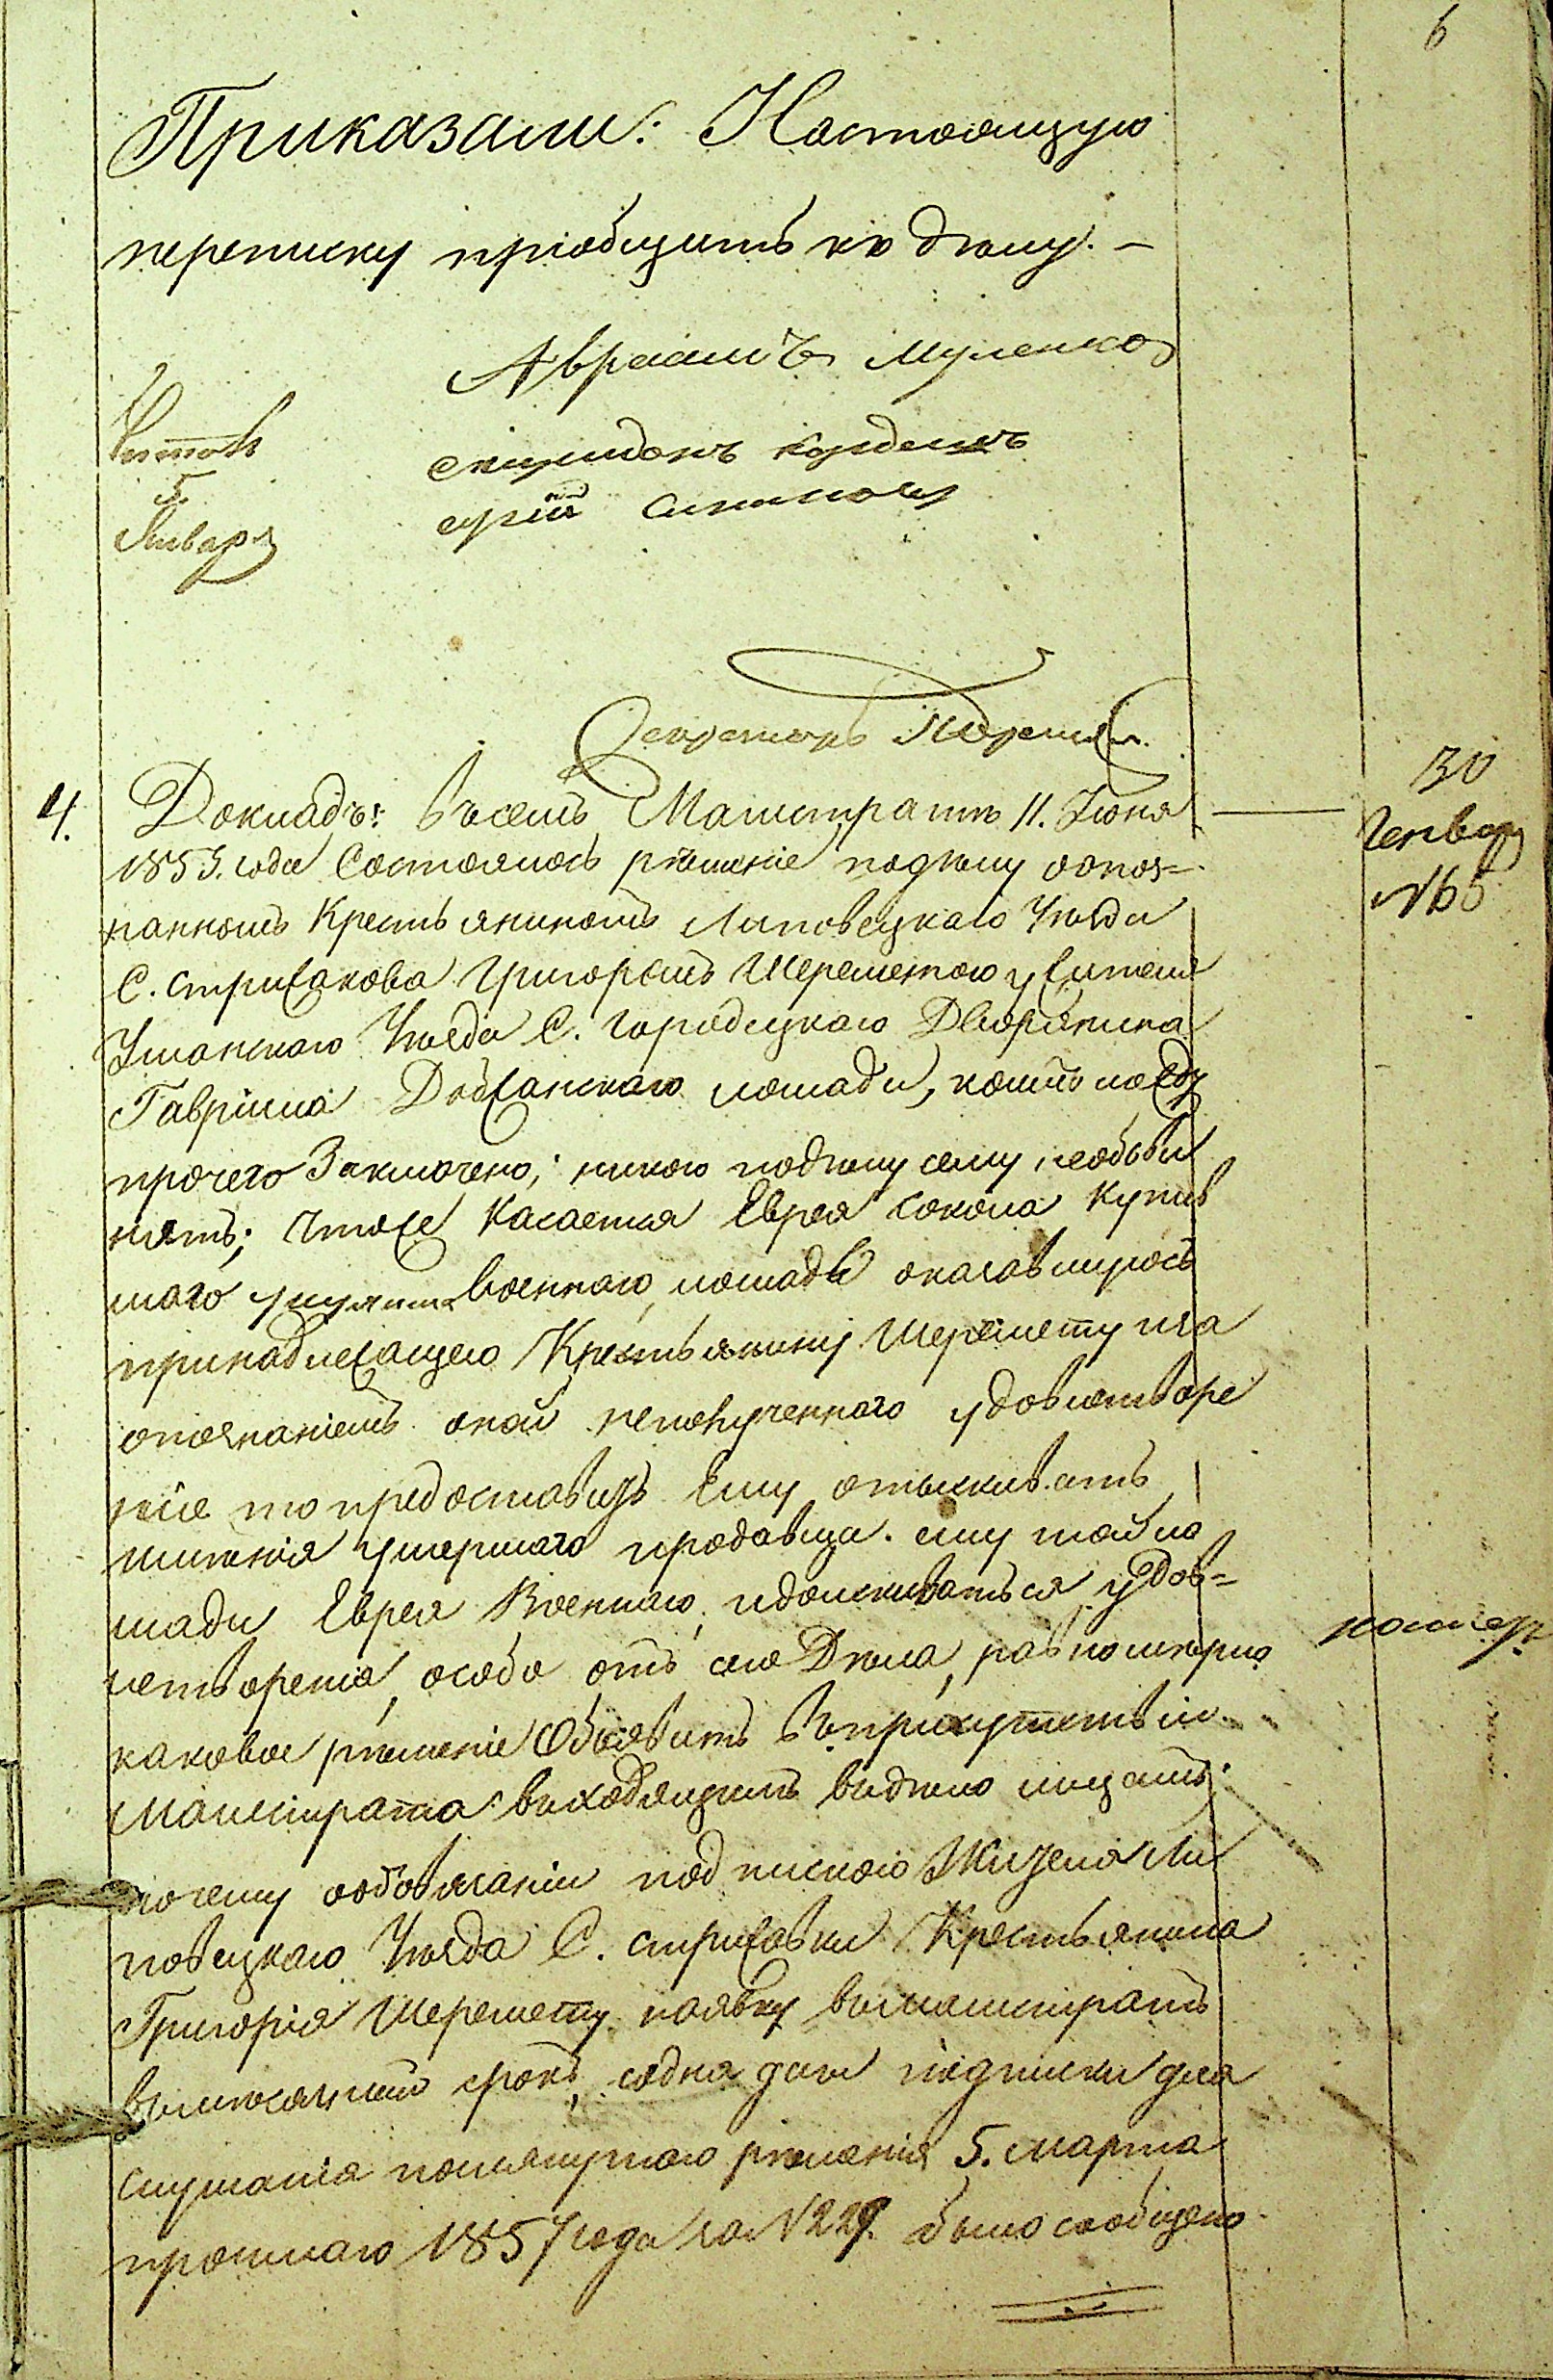 6
Приказали: Настоящую
переписку пріобщить къ дѣлу. –
Авраамъ
Читалъ
5
Января
Секретарь
4. Докладъ: Въ семъ Магистратѣ 11. Іюня
30
Генвар
№ 65
1853. года Состоялось рѣшеніе подѣлу оопоз=
нанномъ Крестьяниномъ Липовецкаго Уѣзда
С. Стрижакова Григоромъ Шереметою ужителя
Уманскаго Уѣзда С. Городецкаго Дворянина
Гавріила Добжанскаго лошади, коимъ между
прочего Заключено; никого подѣлу сему необъви
нять; чтоже Касается Еврея Сокола Купив
шаго у Военнаго, лошадь оказавшуюсь
принадлежащею Крестьянину Шеремету иза
опознаніемъ оной неполученнаго удовлетворе
ніе то предоставить Ему отыскивать
имѣнія умершаго продавца ему той ло
шади Еврея Военнаго, идоискиваться удов=
летворенія, особо отъ сего Дѣла, равномѣрно
каковое рѣшеніе Объявить въприсутствіи
Магистрата выходящимъ видѣло лицамъ;
почему ообовязаніи подпискою Жителя Ли
повецкаго Уѣзда С. Стрижавки Крестьянина
Григорія Шеремету наявку вмагистратъ
вмѣсячный срокъ, содня дачи подписки для
слушанія помянутаго рѣшенія 5. Марта
прошлаго 1857 года за № 229. было сообщено